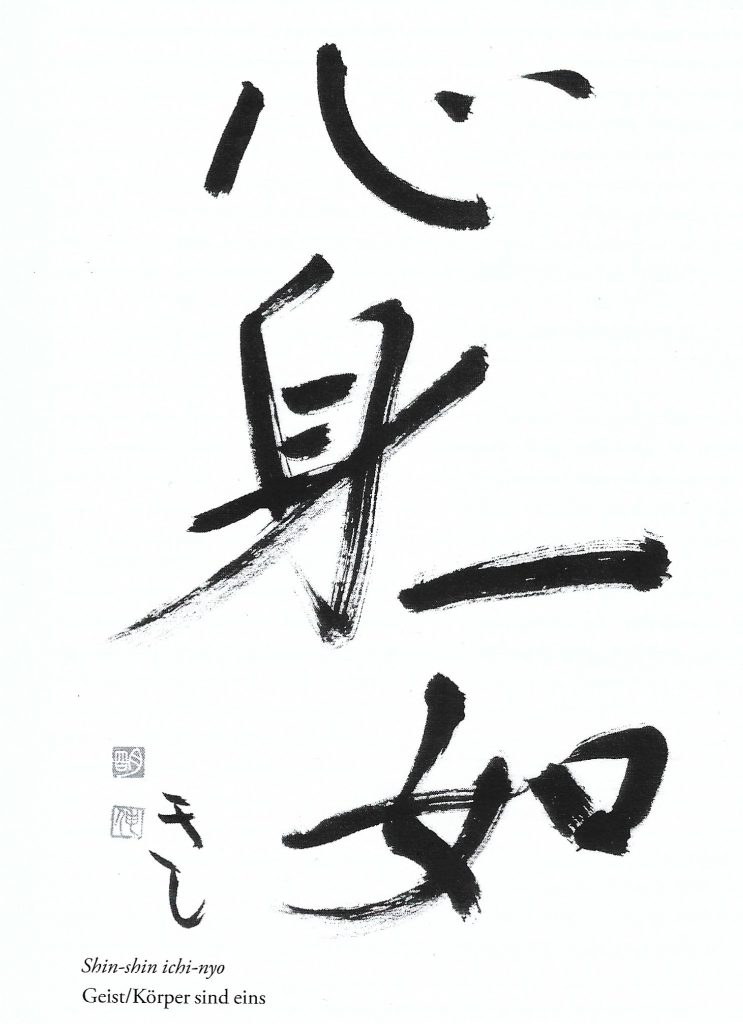 心身一如
Shin-shin ichi-nyo
Geist/Körper sind eins